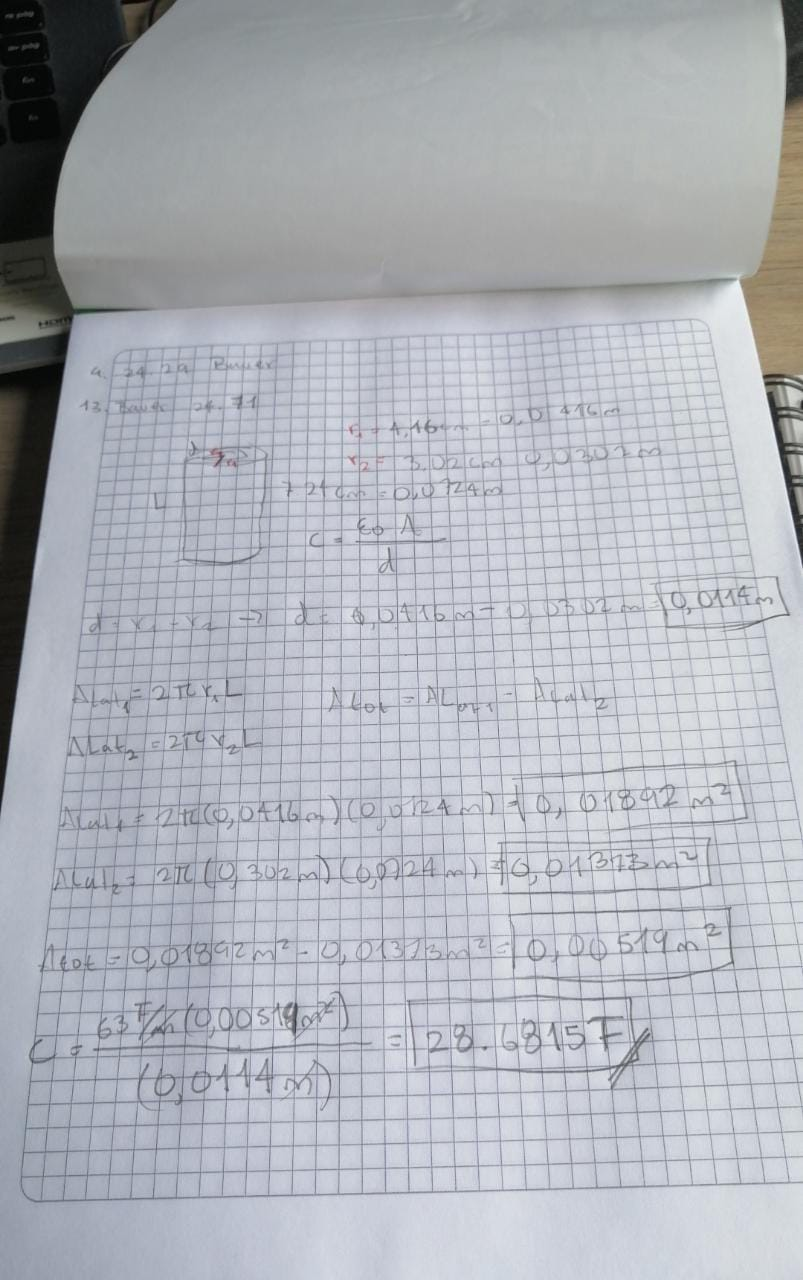 re pág
av pág
fin
HDMI
9. 24.29 Bauer
13. Bauer 24.71
r₁ = 4,16cm = 0,0416m
r₂ = 3,02cm 0,0302m
L
7 24cm = 0,0724m
C = ε₀ A / d
d = r₁ - r₂ → d = 0,0416m - 0,0302m = 0,0114m
ALat₁ = 2πr₁L Atot = ALat₁ - ALat₂
ALat₂ = 2πr₂L
ALat₁ = 2π(0,0416m)(0,0724m) = 0,01892 m²
ALat₂ = 2π(0,302m)(0,0724m) = 0,01373m²
Atot = 0,01892m² - 0,01373m² = 0,00519m²
C = 63 F/m (0,00519m²) / (0,0114m) = 28.6815F